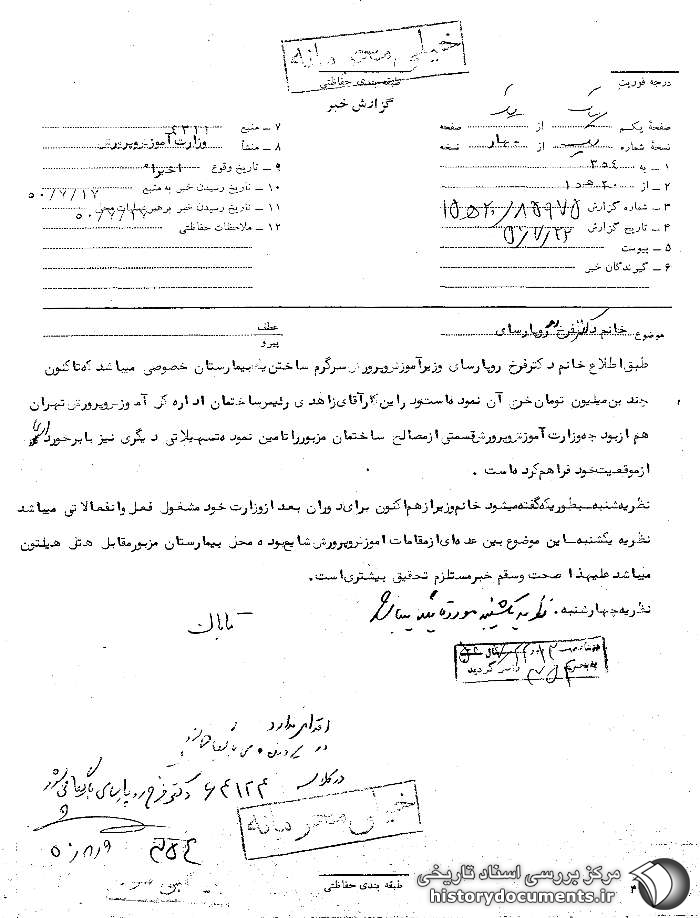 خیلی محرمانه
طبقه بندی حفاظتی
گزارش خبر
درجه فوریت
صفحهٔ یکم از یک صفحه
نسخهٔ شماره از چهار نسخه
۱ ـ به ۳۵۴
۲ ـ از ۲۰ هـ ۱
۳ ـ شماره گزارش
۴ ـ تاریخ گزارش ۵۰/۷/۲۲
۵ ـ پیوست
۶ ـ گیرندگان خبر
۷ ـ منبع
۸ ـ منشأ وزارت آموزش وپرورش
۹ ـ تاریخ وقوع اخیرا"
۱۰ ـ تاریخ رسیدن خبر به منبع ۵۰/۷/۱۷
۱۱ ـ تاریخ رسیدن خبر برهبر عملیات
۱۲ ـ ملاحظات حفاظتی
موضوع خانم دکتر فرخ رو پارسای
عطف
پیرو
طبق اطلاع خانم دکتر فرخ روپارسای وزیر آموزش وپرورش سرگرم ساختن یه بیمارستان خصوصی میباشد که تاکنون
چندین میلیون تومان خرج آن نموده است و در این کار آقای زاهدی رئیس ساختمان اداره کل آموزش وپرورش تهران
هم از بودجه وزارت آموزش وپرورش قسمتی از مصالح ساختمان مزبور را تامین نموده و تسهیلاتی دیگری نیز با برخورداری
از موقعیت خود فراهم کرده است .
نظریه شنبه ـ بطوریکه گفته میشود خانم وزیر از هم اکنون برای دوران بعد از وزارت خود مشغول فعل وانفعالاتی میباشد
نظریه یکشنبه ـ این موضوع بین عده ای از مقامات آموزش وپرورش شایع بوده محل بیمارستان مزبور مقابل هتل هیلتون
میباشد علیهذا صحت وسقم خبر مستلزم تحقیق بیشتری است .
نظریه چهارشنبه . نظریه یکشنبه مورد تائید میباشد
تابان
اقدامی ندارد
در کلاسه ۶۴۱۲۴ دکتر فرخ رو پارسای بایگانی شود
۵۰/۸/۹
خیلی محرمانه
طبقه بندی حفاظتی
مرکز بررسی اسناد تاریخی
historydocuments.ir